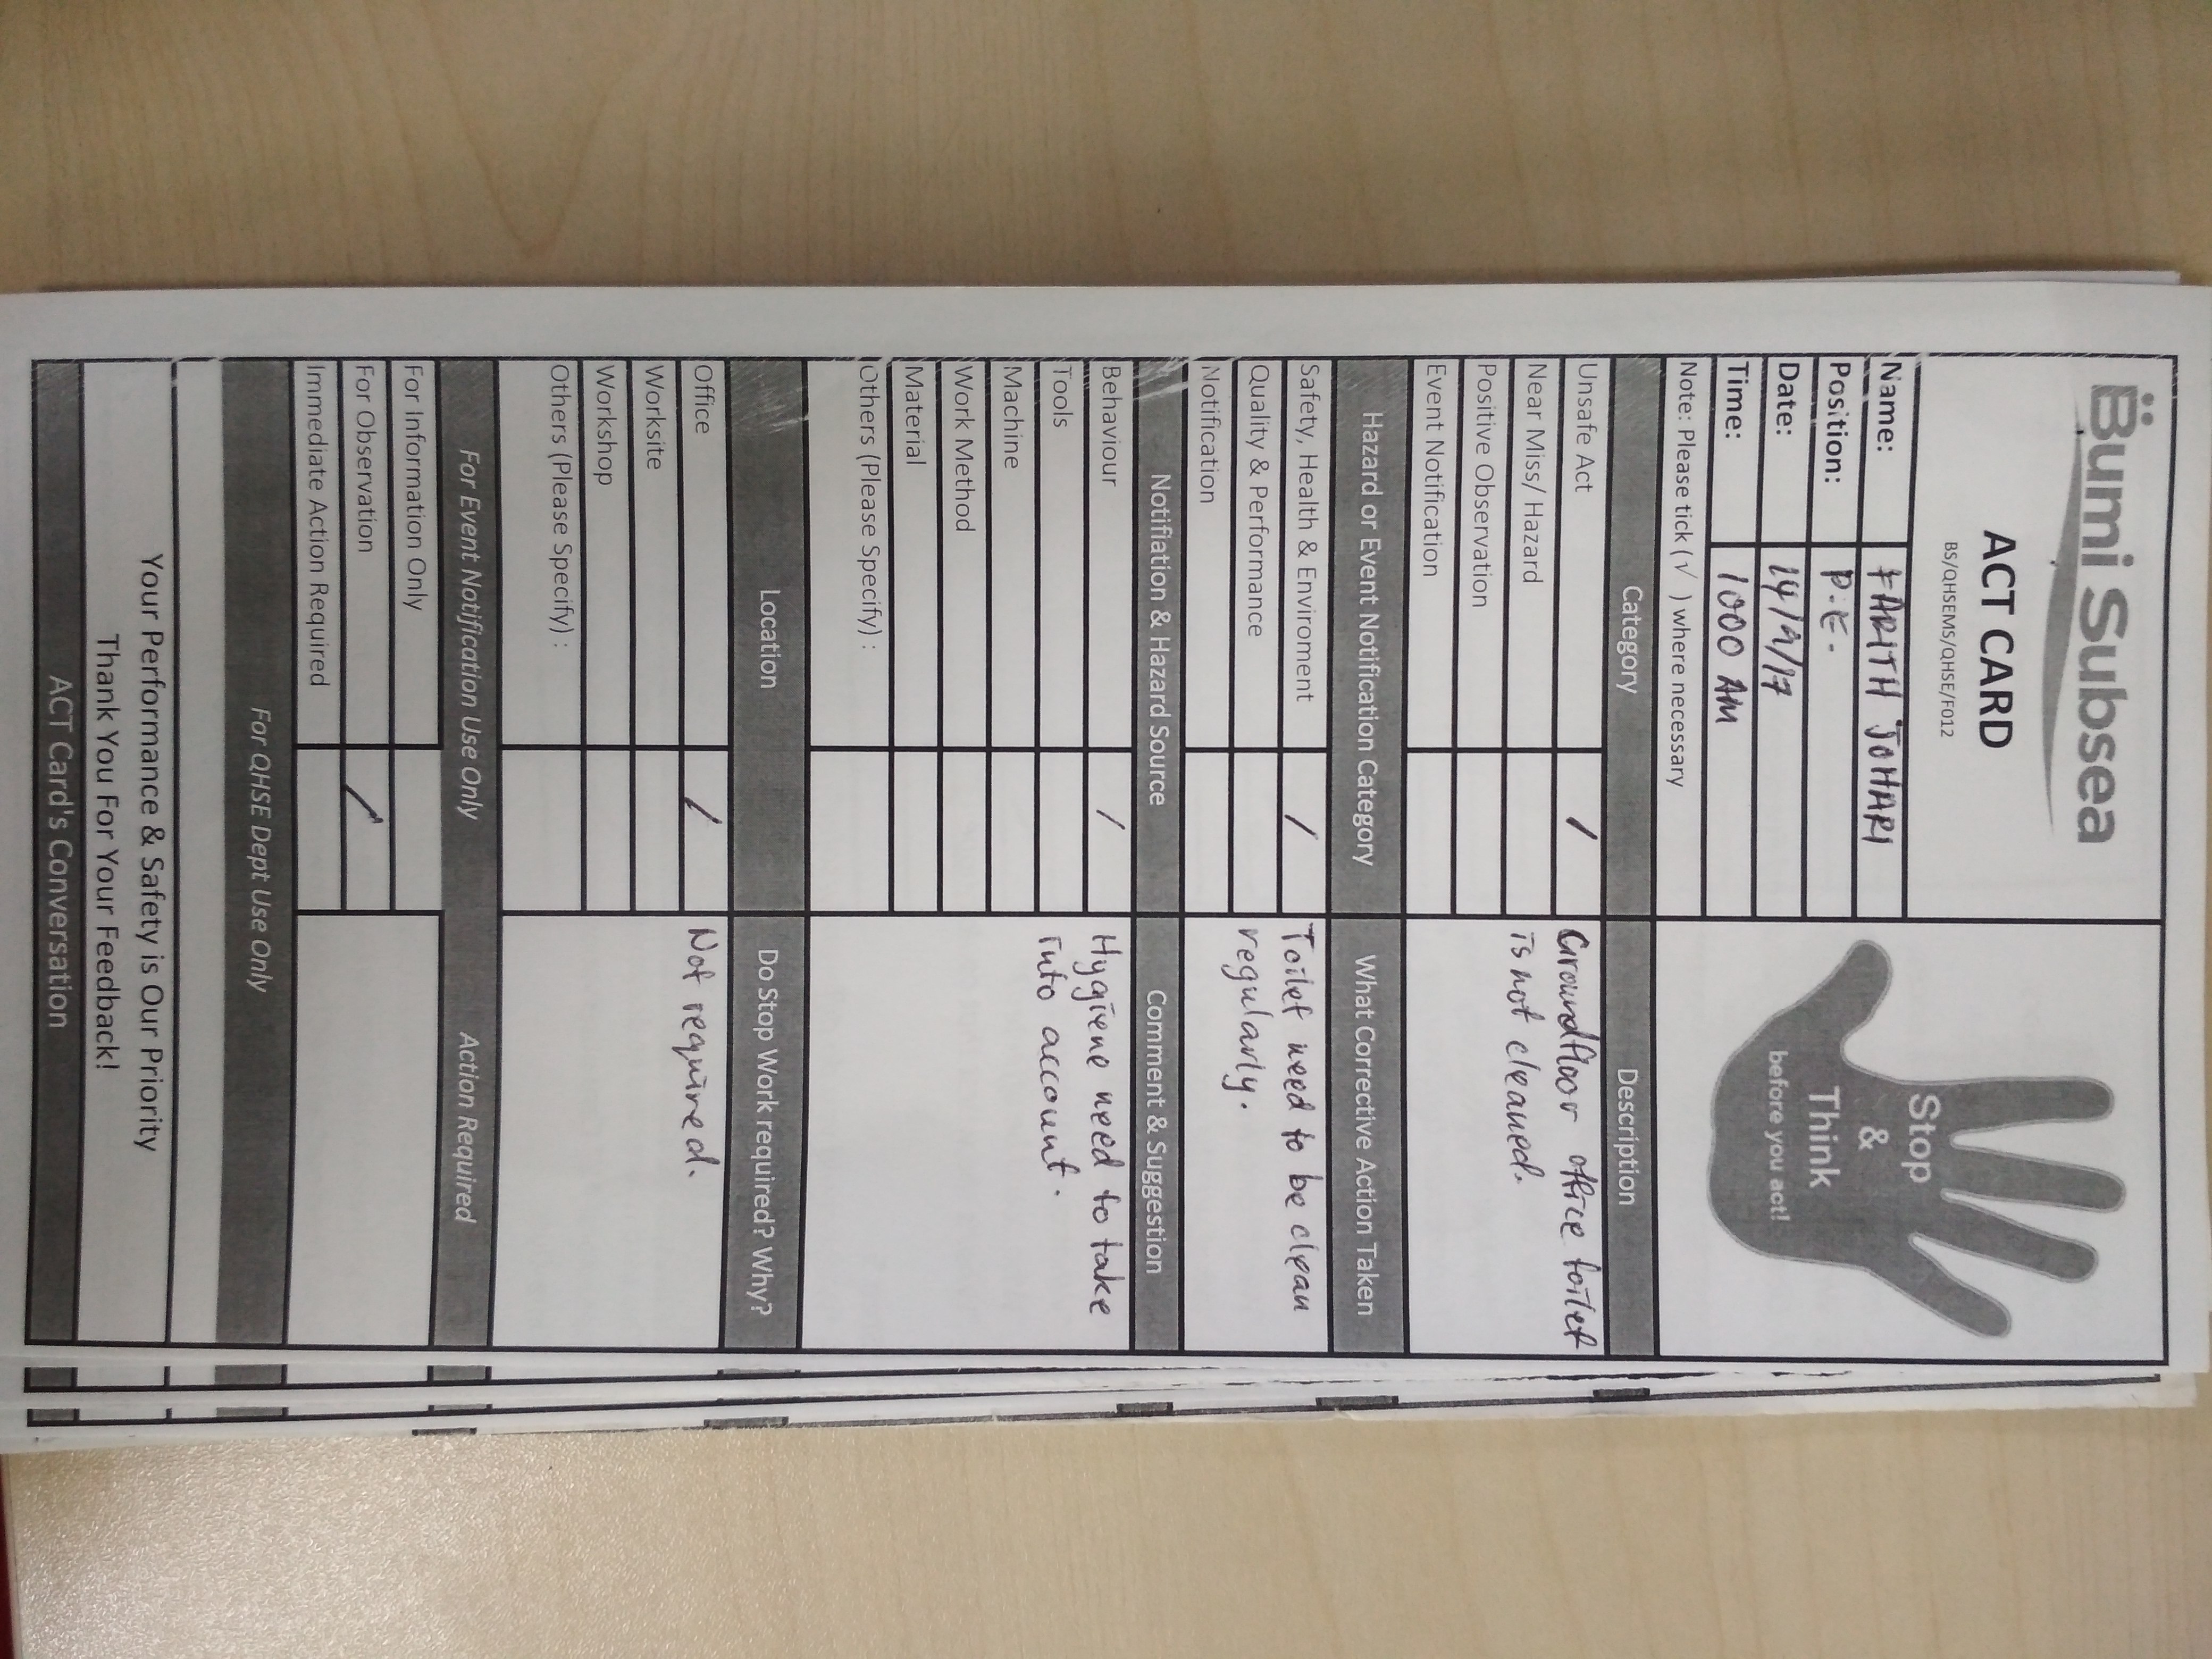 Bumi Subsea
ACT CARD
BS/QHSEMS/QHSE/F012
Stop
&
Think
before you act!
Name: FARITH JOHARI
Position: P.E.
Date: 14/9/17
Time: 1000 AM
Note: Please tick (√ ) where necessary
Category Description
Unsafe Act / Groundfloor office toilet
Near Miss/ Hazard is not cleaned.
Positive Observation
Event Notification
Hazard or Event Notification Category What Corrective Action Taken
Safety, Health & Enviroment / Toilet need to be clean
Quality & Performance regularly.
Notification
Notifiation & Hazard Source Comment & Suggestion
Behaviour / Hygiene need to take
Tools into account.
Machine
Work Method
Material
Others (Please Specify) :
Location Do Stop Work required? Why?
Office / Not required.
Worksite
Workshop
Others (Please Specify) :
For Event Notification Use Only Action Required
For Information Only
For Observation /
Immediate Action Required
For QHSE Dept Use Only
Your Performance & Safety is Our Priority
Thank You For Your Feedback!
ACT Card's Conversation